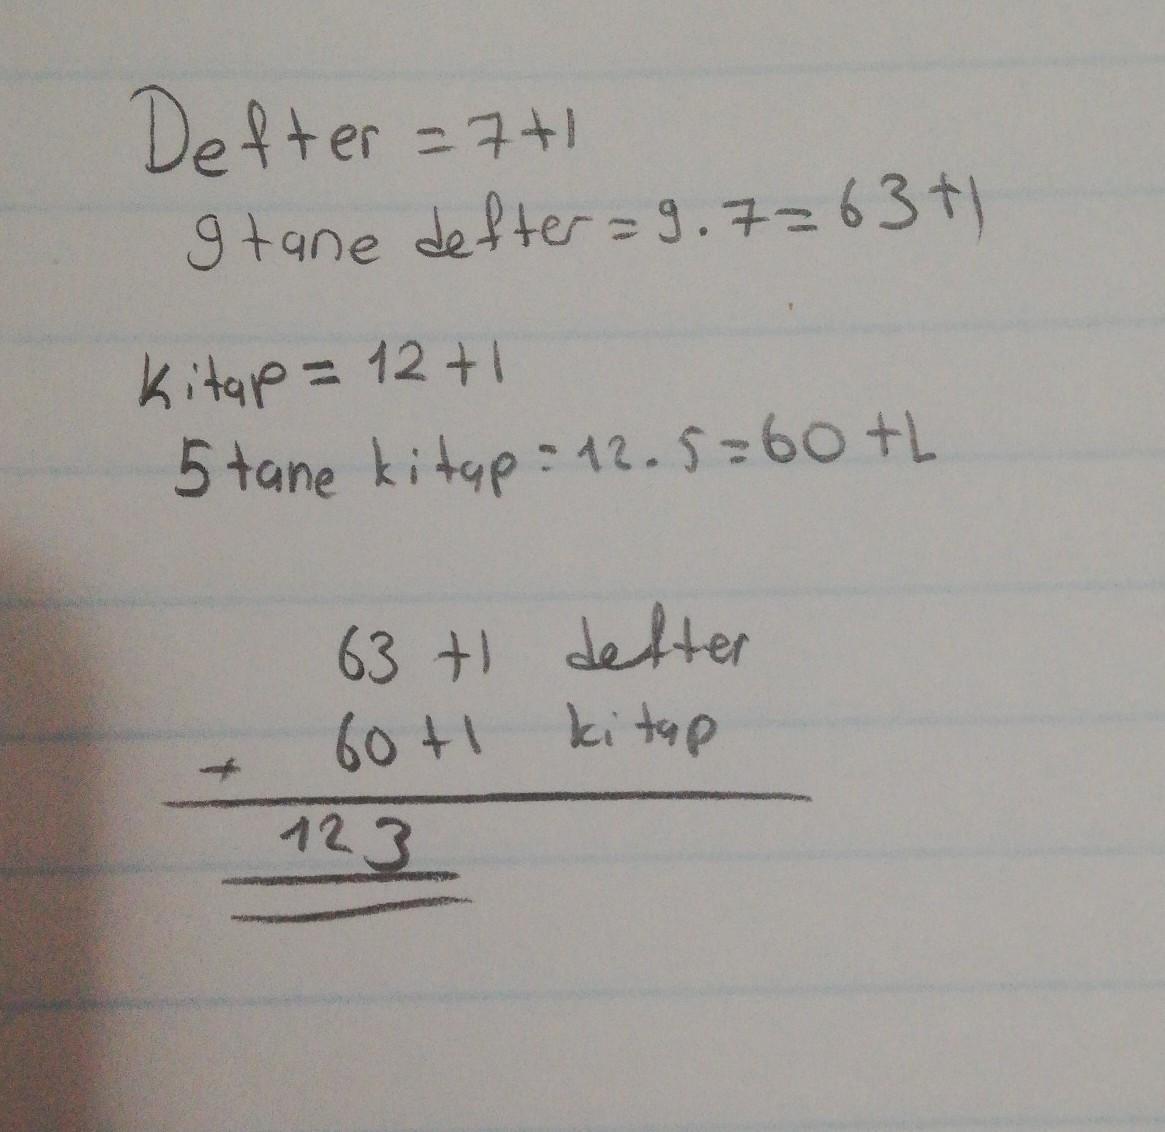 Defter = 7+1
9 tane defter = 9.7 = 63+1
Kitap = 12+1
5 tane kitap = 12.5 = 60+L
63 +1 defter
+ 60+1 kitap
123